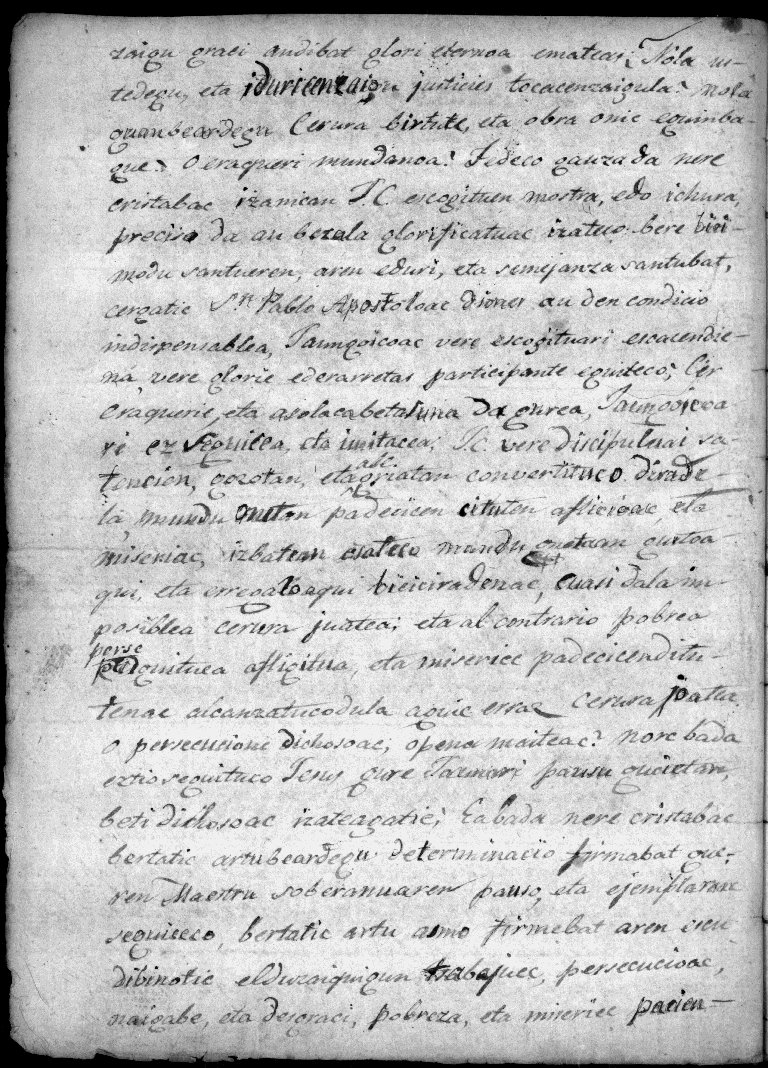 zaigu graci audibat glori eternoa emateas; Nola us-
tedegu, eta iduricenzaigu justicies tocacenzaigula? nola
guanbeardegu Cerura birtute, eta obra onic eguinba-
gue? O eraqueri mundanoa! Fedeco gauza da nere
cristabac izanican J.C. escogituen mostra, edo ichura,
preciso da au bezala glorificatuac izateco bere bici-
modu santueren, aren eduri, eta semejanza santubat,
cergatic Sn. Pablo Apostoloac dionez au den condicio
indispensablea, Jaungoicoac vere escogituari escacendie-
ná vere glorie ederarretas participante eguiteco; Cer
Eraquerie, eta asolacabetasuna da gurea, Jaungoicoa-
ri ez seguicea, eta imitacea; J.C. vere discipuluai sa-
tencien, gozotan, eta alegriatan convertituco dirade-
la, mundu onetan padecicen cituten aflicioac, eta
miseriac, izbatean esateco mundu onetaan gustoa
qui, eta erregaloaqui biciciradenac, cuasi dala im-
posiblea cerura juatea; eta al contrario pobrea
perseguituea afligitua, eta miseriec padecicenditu-
tenac alcanzatucodula aguic erraz Cerura joatea.
O persecucione dichosoac; o pena maiteac? nore bada
eztio seguituco Jesus gure Jaunari pausu gucietan,
beti dichosoac izateagatic; Ea bada nere cristabac
bertatic artubeardegu determinacio firmabat gue-
ren Maestru soberanuaren pauso, eta ejemplarac
seguiceco, bertatic artu asmo firmebat aren escu
dibinotic elduzaiquigun trabajuec, persecucioac,
naigabe, eta desgraci, pobreza, eta miseriec pacien-